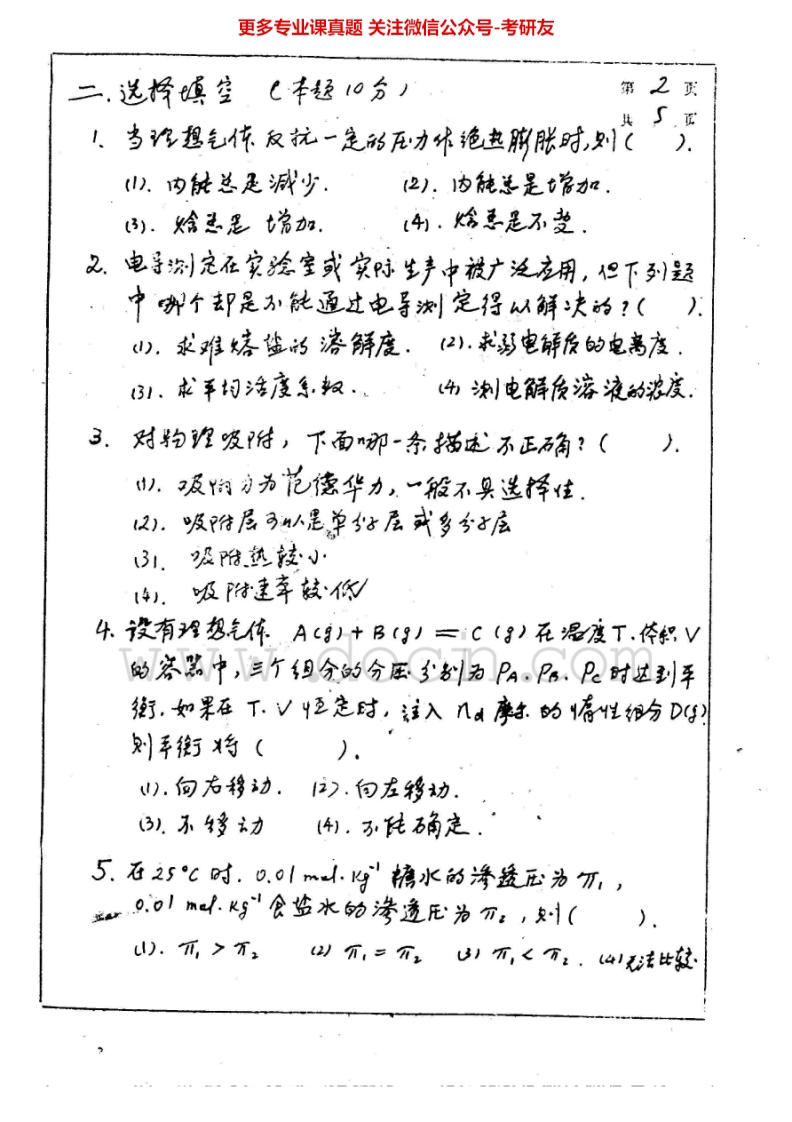 更多专业课真题 关注微信公众号-考研友
二.选择填空 (本题10分)
第 2 页
共 5 页
1. 当理想气体反抗一定的压力作绝热膨胀时,则( ).
(1). 内能总是减少. (2). 内能总是增加.
(3). 焓总是增加. (4). 焓总是不变.
2. 电导测定在实验室或实际生产中被广泛应用,但下列题
中哪个却是不能通过电导测定得以解决的?( ).
(1). 求难熔盐的溶解度. (2).求弱电解质的电离度.
(3). 求平均活度系数. (4) 测电解质溶液的浓度.
3. 对物理吸附,下面哪一条描述不正确?( ).
(1). 吸附力为范德华力,一般不具选择性.
(2). 吸附层可以是单分子层或多分子层
(3). 吸附热较小
(4). 吸附速率较低
4. 设有理想气体 A(g)+B(g)=C(g)在温度T.体积V
www.docn.com
的容器中,三个组分的分压分别为PA.PB.PC时达到平
衡.如果在T.V恒定时,注入nd摩尔的惰性组分D(g)
则平衡将( ).
(1).向右移动. (2).向左移动.
(3).不移动 (4).不能确定.
5. 在25°C时.0.01mol·kg⁻¹糖水的渗透压为π₁,
0.01mol·kg⁻¹食盐水的渗透压为π₂,则( ).
(1). π₁>π₂ (2) π₁=π₂ (3) π₁<π₂. (4)无法比较.